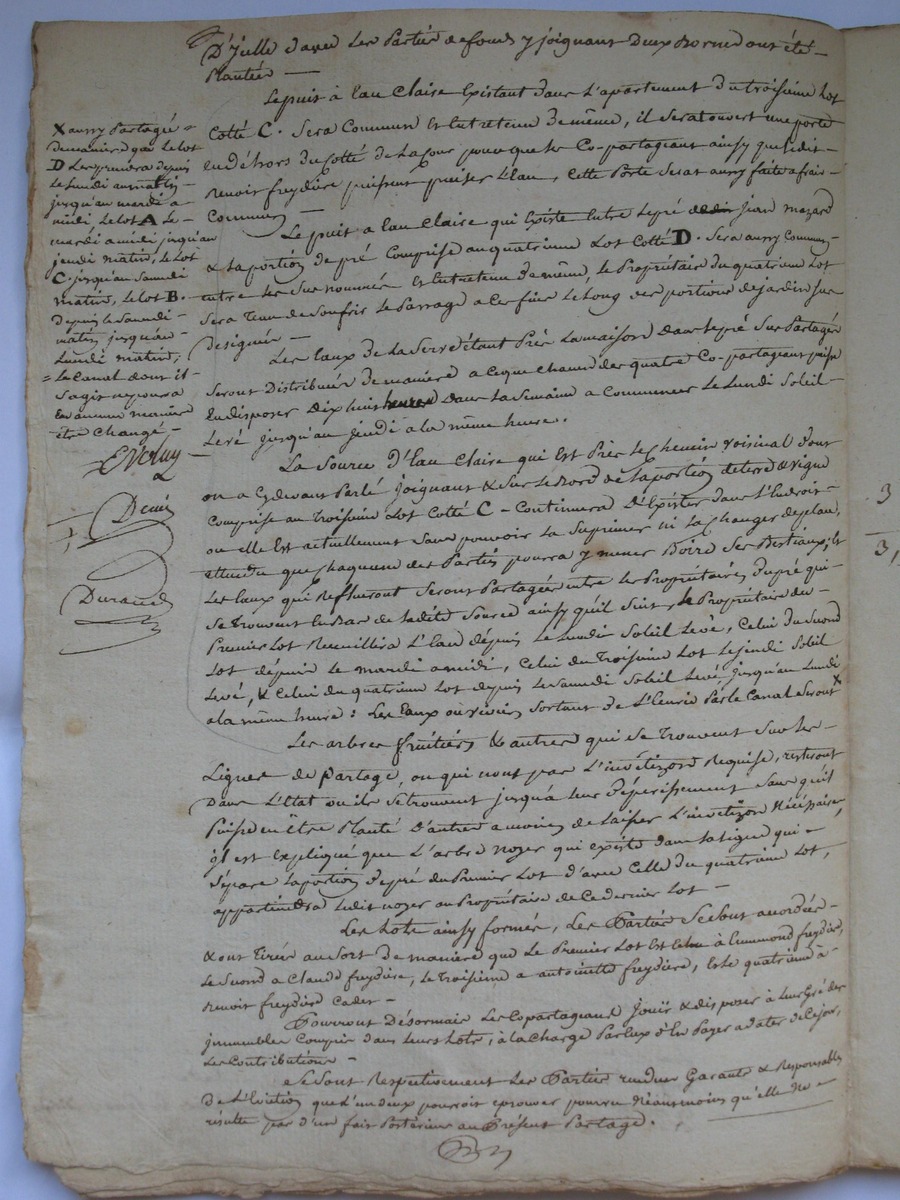 D'icelle d'avec les Parties de fonds y joignant Deux Bornes ont été
Plantées —
Le puit à Eau Claire Existant dans l'apartement du troisieme Lot
Cotté C. Sera Commun Et Entretenu De même, il Serat ouvert une porte
En déhors du Cotté de la Cour pour que les Co-partageant ainsy que ledit
Benoit freydiere puissent puiser l'Eau, Cette Porte Serat aussy faite a frais
Communs —
Le puit a Eau Claire qui Existe Entre le pré jean mazard
& la portion de pré Comprise au quatrieme Lot Cotté D. Sera aussy Commun
entre les Sus nommés Et Entretenu De même, le Propriétaire du quatrieme Lot
Sera Tenu de Soufrir le Passage a les fins le Long des portions de jardin sus
designées —
Les Eaux de la Serve étant Près la maison dans le pré Sus Partagés
Seront Distribuées De maniere a Ceque chacun des quatre Co-partageant puisse
En disposer Dix huit heures dans la Semaine a Commencer Le Lundi Soleil
Levé jusqu'au jeudi a la même heure.
La Source d'Eau Claire qui Est Près le Chemin voisinal dont
on a Cydevant Parlé joignant & sur le Bord de la portion de terre & vigne
Comprise au Troisieme Lot Cotté C — Continuera D'Exister dans l'Endroit
ou elle Est actuellement Sans pouvoir la Suprimer ni la Changer de place,
attendu que Chaqune des Parties pourra y mener Boire Ses Bestiaux; Et
Les Eaux qui Reflueront Seront Partagées entre les Propriétaires du pré qui
Se Trouvent En Bas de la dite Source ainsy qu'il Suit, le Propriétaire du
Premier Lot Recueillira L'Eau depuis le Lundi Soleil Levé, Celui du Second
Lot depuis le mardi a midi, Celui du Troisieme Lot le jeudi Soleil
Levé, & Celui du quatrieme Lot depuis le Samedi Soleil Levé jusqu'au Lundi
a la même heure: Les Eaux Sortant de L'Ecurie Par le Canal Seront X
Les arbres fruitiers & autres qui Se Trouvent Sur les
Lignes de Partage, ou qui n'ont pas L' Requise, resteront
Dans L'Etat ou ils Se trouvent jusqu'a leur Dépérissement Sans qu'il
Puisse en Être Planté D'autres a moins de laisser L' Nécéssaire,
il est Expliqué que L'arbre Noyer qui existe dans la ligne qui
Sépare la portion de pré du Premier Lot d'avec Celle du quatrieme Lot,
appartiendra Ledit noyer au Propriétaire de Ce dernier Lot —
Les Lots ainsy formés, Les Parties Se Sont accordées
& ont Tirées au Sort de maniere que Le Premier Lot Est Echu à Ennemond freydiere,
le Second a Claude freydiere, le Troisieme a antoinette freydiere, Et le quatrieme à
Benoit freydiere Cadet —
Pourront Désormais Les Copartageans Jouir & disposer à Leur Gré des
jmmeubles Compris dans leurs Lots, à la Charge Par Eux d'En Payer a dater de Ce jour,
Les Contributions —
Se Sont Respectivement Les Parties rendues Garants & Responsables
De l'Eviction que L'un d'eux pourroit eprouver pourvu néanmoins qu'elle Ne
résulte pas d'un fait Postérieur au Présent Partage.
X aussy Partagée
de maniere que le Lot
D Les prendra depuis
le Lundi au matin
jusqu'au mardi a
midi, le Lot A le
mardi a midi jusqu'au
jeudi matin, le Lot
C jusqu'au Samedi
matin, le Lot B.
depuis le Samedi
matin jusqu'au
Lundi matin;
= le Canal dont il
s'agit ne poura
En aucune maniere
être Changé —
Denis
Durand
3
3,